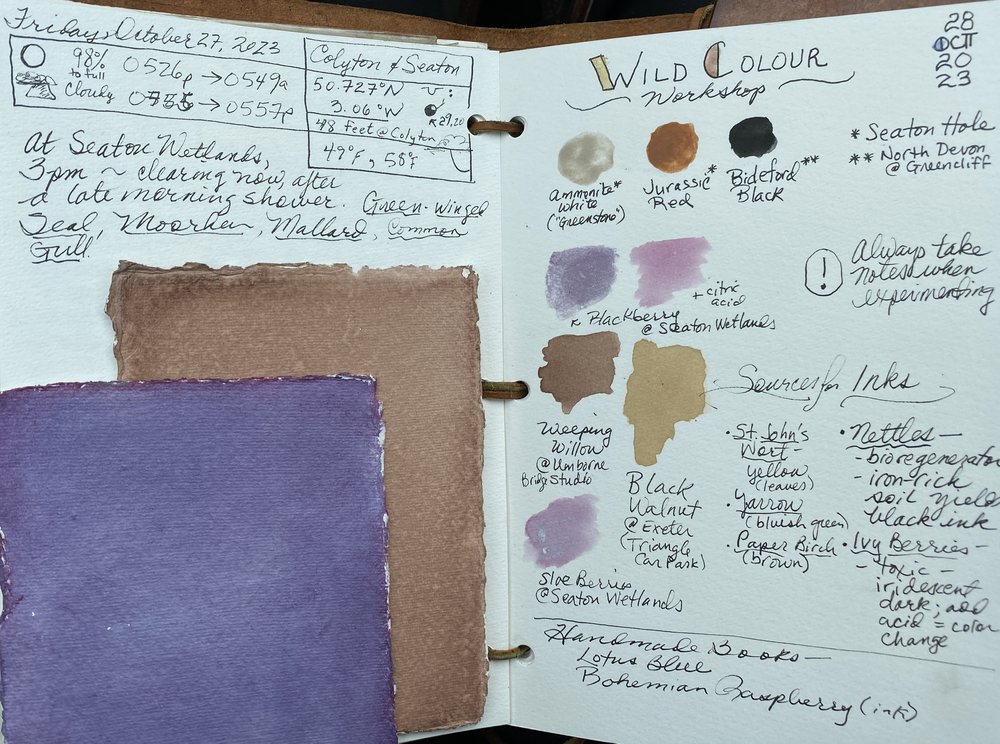 Friday, October 27, 2023
98%
to full
Cloudy
0526p → 0549a
→ 0557p
Colyton & Seaton
50.727°N
3.06°W
29.20
48 feet @ Colyton
49°F, 58°F
At Seaton Wetlands,
3pm ~ clearing now after
a late morning shower. Green-winged
Teal, Moorhen, Mallard, Common
Gull.
28
OCT
20
23
WILD COLOUR
Workshop
Ammonite*
White
("Greenstone")
Jurassic*
Red
Bideford**
Black
* Seaton Hole
** North Devon
@ Greencliff
+ citric
acid
Blackberry
@ Seaton Wetlands
! Always take
notes when
experimenting
Weeping
Willow
@ Umborne
Bridge Studio
Black
Walnut
@ Exeter
(Triangle
Car Park)
Sloe Berries
@ Seaton Wetlands
Sources for Inks
• St. John's
Wort -
yellow
(leaves)
• Yarrow
(bluish green)
• Paper Birch
(brown)
• Nettles —
- bioregenerator
- iron-rich
soil yields
black ink
• Ivy Berries -
- toxic -
iridescent
dark; add
acid = color
change
Handmade Books —
Lotus Blue
Bohemian Raspberry (ink)